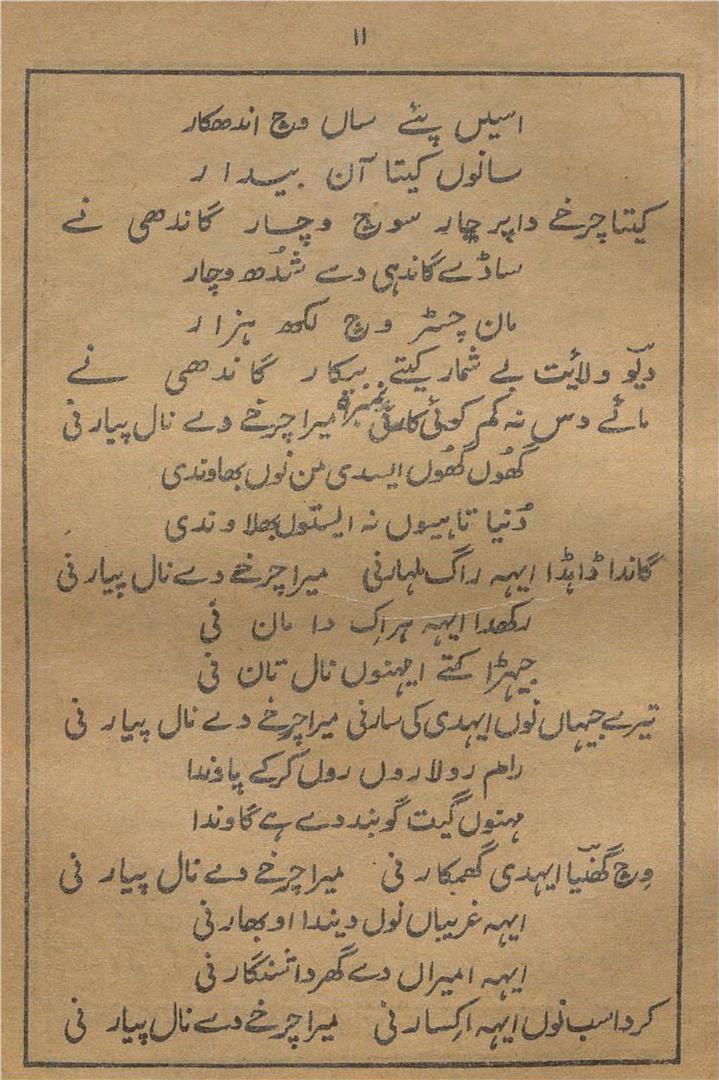 ۱۱
اسیں پئے ساں وچ اندھکار
سانوں کیتا آن بیدار
کیتا چرخے دا پرچار سوچ وچار گاندھی نے
ساڈے گاندہی دے شدُھ وچار
مان چسٹر وچ لکھ ہزار
دیّو ولائیت بے شمار کیتے بیکار گاندھی نے
مائے دس نہ کم کوئی کارنی نمبر ۹ میرا چرخے دے نال پیار نی
گھُوں گھُوں ایسدی من نوں بھاوندی
دُنیا تاہیوں نہ ایسنوں بھلاوندی
گاندا ڈاہڈا ایہہ راگ ملہار نی میرا چرخے دے نال پیار نی
رکھدا ایہہ ہراِک دا مان نی
جیہڑا کتے ایہنوں نال تان نی
تیرے جیہاں نوں ایہدی کی سار نی میرا چرخے دے نال پیار نی
رام رولا روں روں کرکے پاوندا
مہنوں گیت گوبند دے ہے گاوندا
وِچ گھنّیا ایہدی گھمبکار نی میرا چرخے دے نال پیار نی
ایہہ غریباں نوں دیندا اوبھار نی
ایہہ امیراں دے گھر دا شنگار نی
کردا سب نوں ایہہ اکِسار نی میرا چرخے دے نال پیار نی